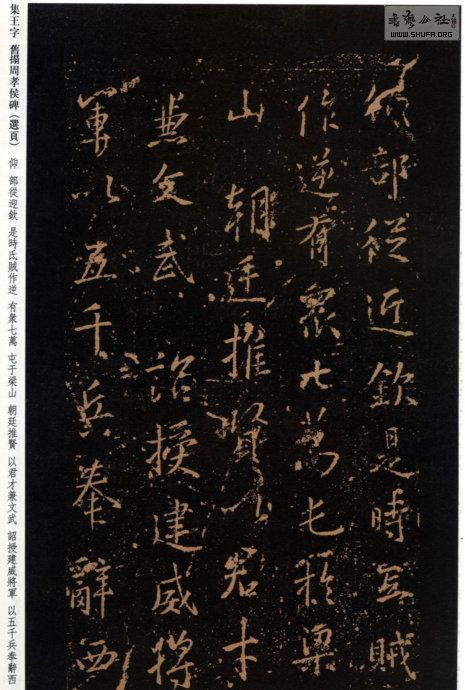 仰部從近欽是時互賊
作逆有衆七萬屯於梁
山朝廷推賢以君才
兼文武詔授建威將
軍以五千兵奉辭西
集王字 舊搨周孝侯碑（選頁） 仰 部從迎欽 是時氐賊作逆 有衆七萬 屯于梁山 朝廷推賢 以君才兼文武 詔授建威將軍 以五千兵奉辭西
書藝公社
WWW.SHUFA.ORG